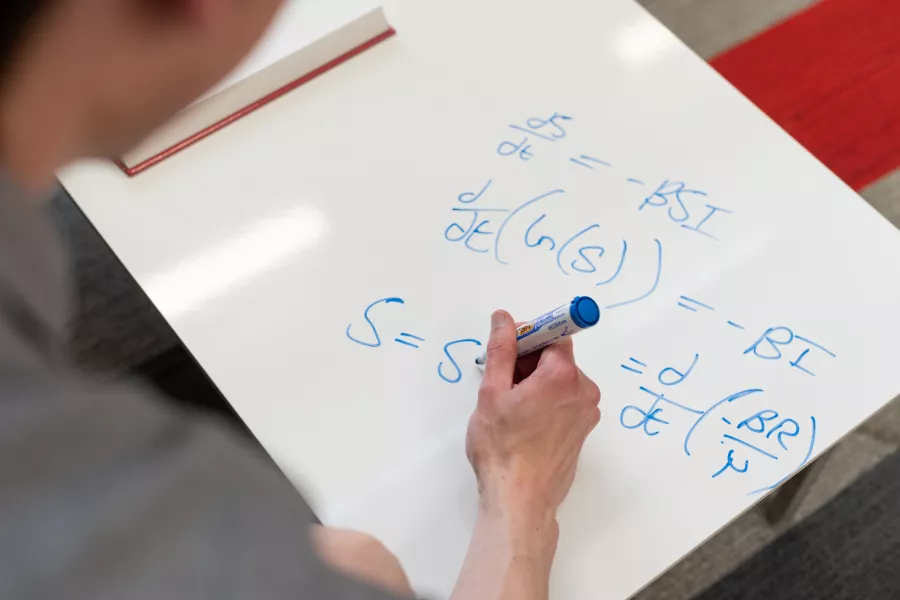 dS/dt = -βSI
d/dt(ln(S)) = -βI
= d/dt(-βR/μ)
S = S